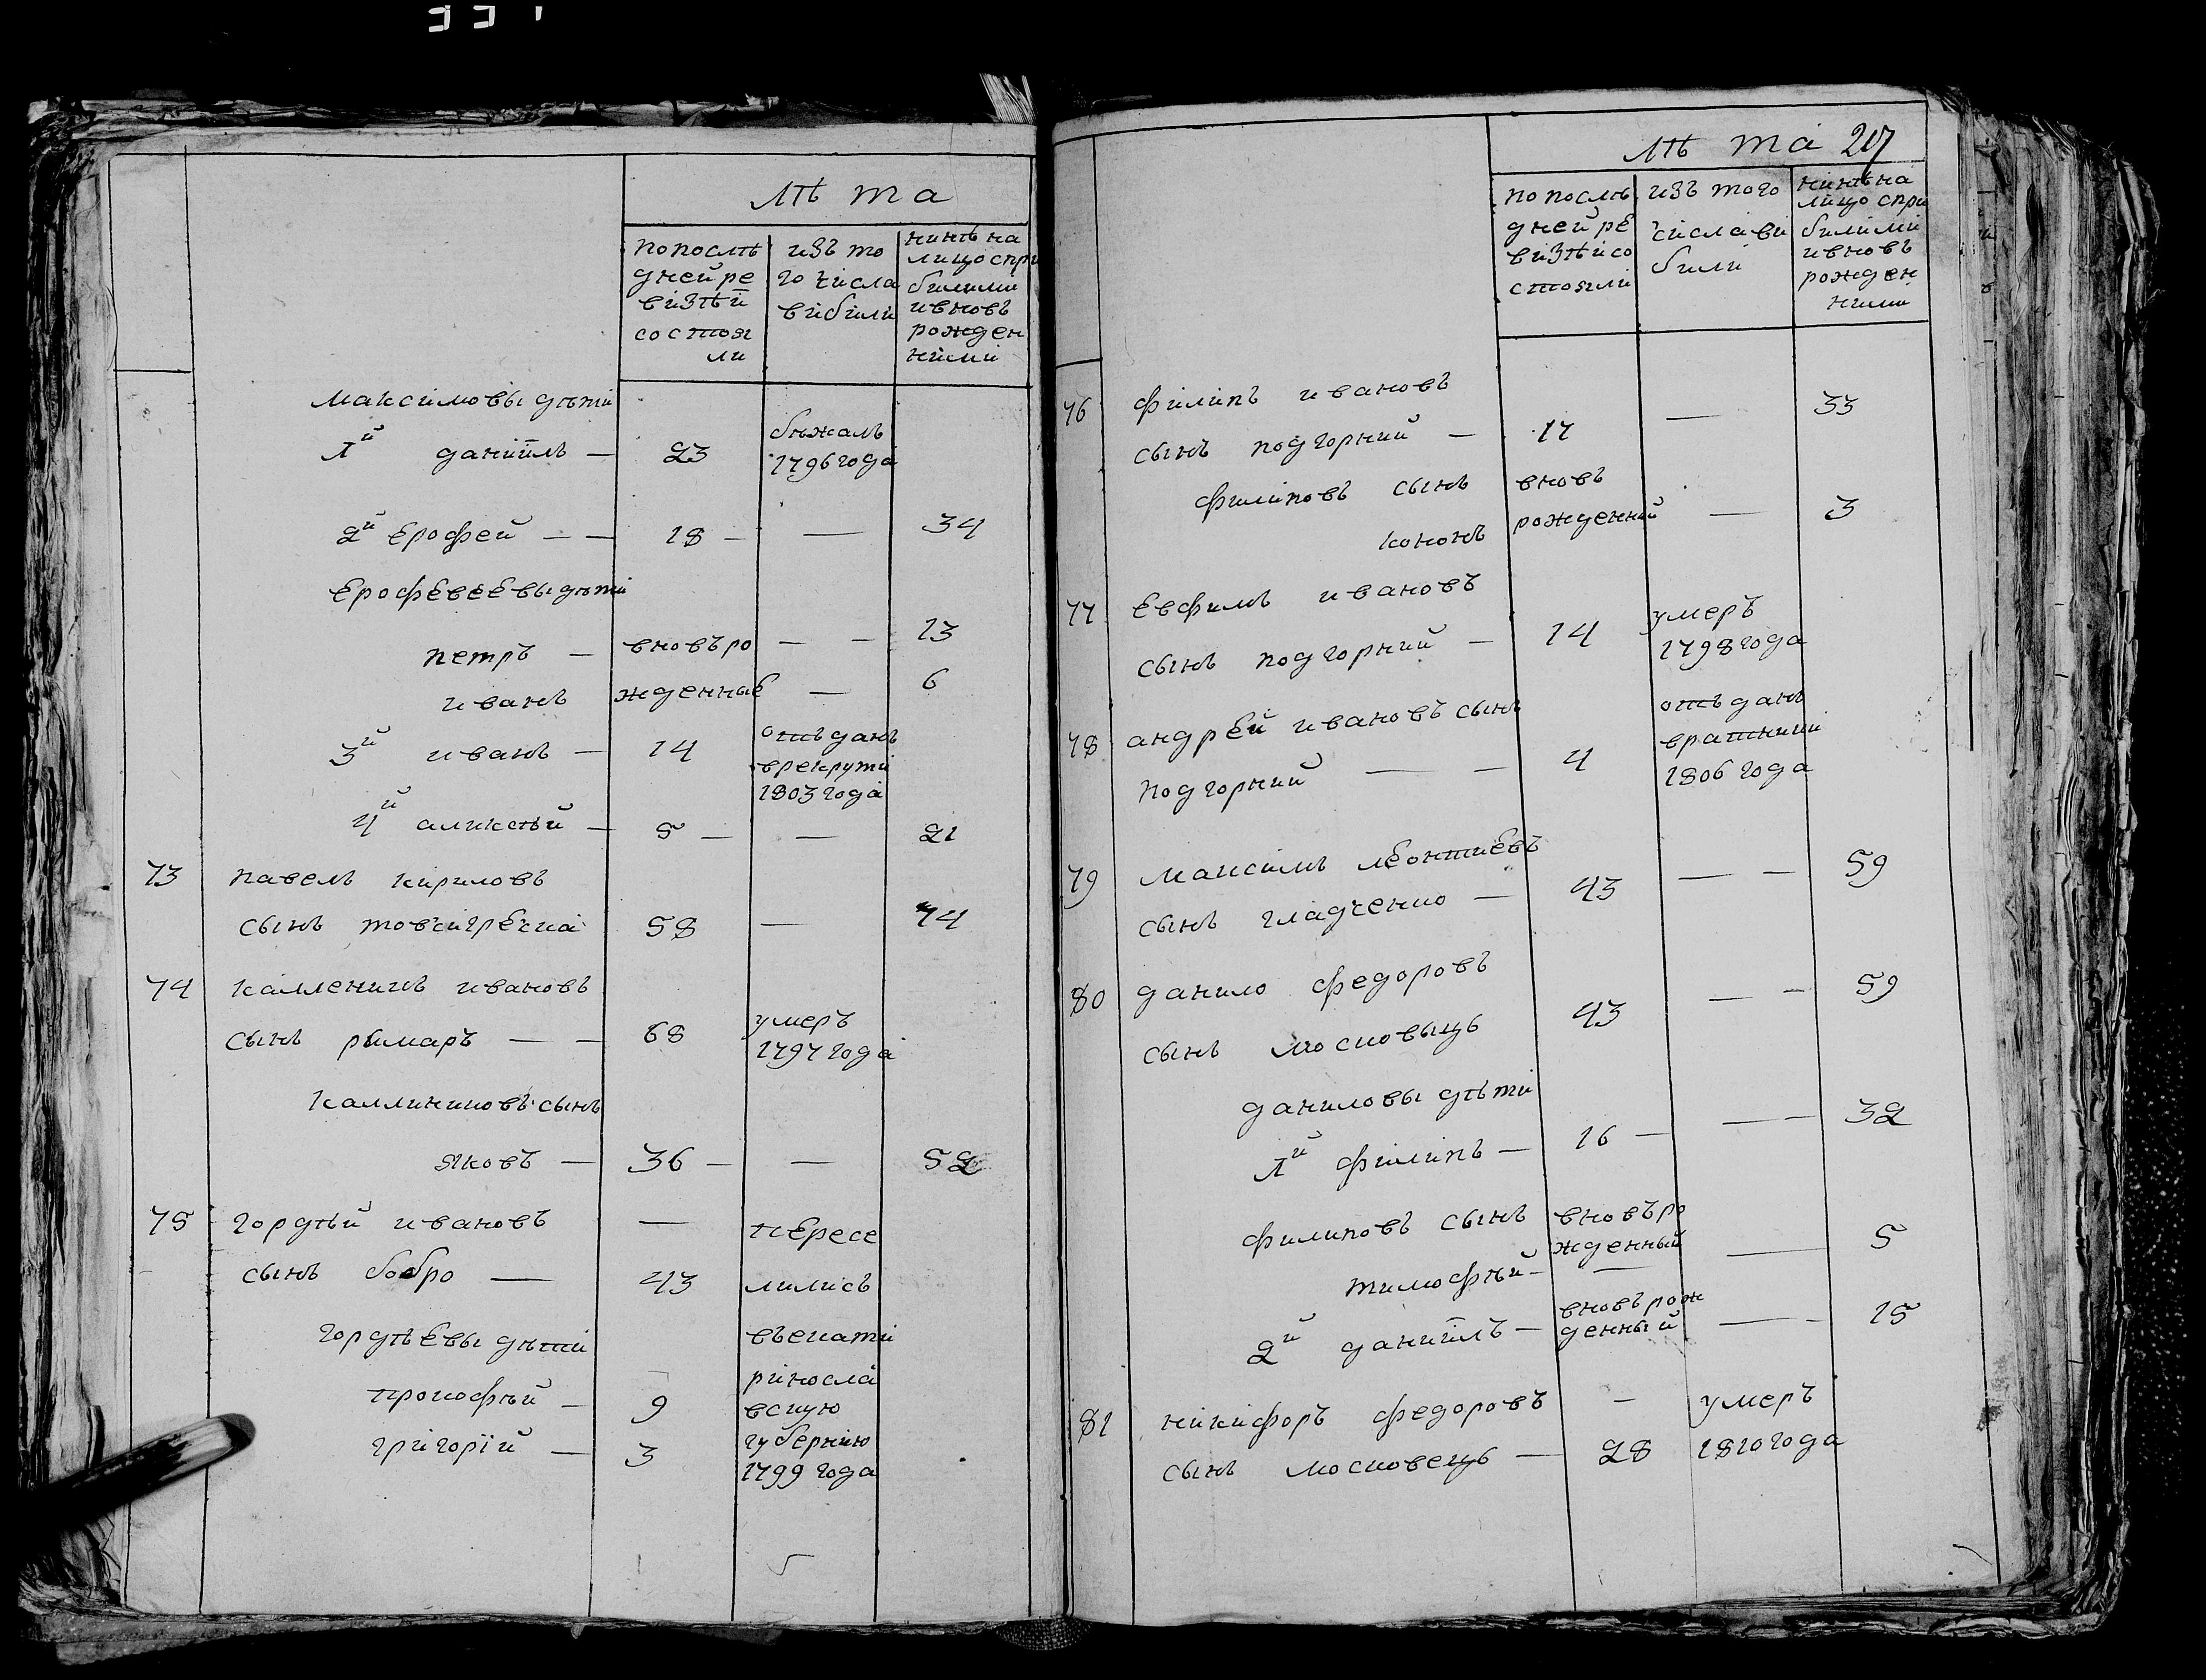 лѣта
попослѣ
дней ре
визѣй
состоя
ли
изъ то
го числа
вибили
нинѣ на
лицо спри
билими
ивновъ
рожден
ними
максимовы дѣти
1й даниилъ — 23 бѣжалъ
1796 года
2й Ерофей — — 18 — — 34
Ерофеевы дѣти
петръ — вновъ ро — — 13
иванъ жденные — 6
3й иванъ — 14 отъданъ
врекрути
1803 года
4й аликсѣй — 5 — — 21
73 павелъ кириловъ
сынъ товсигречка 58 — 74
74 каллениkъ ивановъ
сынъ римаръ — — 68 умеръ
1797 года
каллиниковъ сынъ
яковъ — 36 — — 52
75 гордѣй ивановъ — пересе
сынъ бобро — 43 лились
гордѣевы дѣти въекати
прокофѣй — 9 ринославскую
григорій — 3 губернию
1799 года
лѣта 217
попослѣ
дней ре
визѣи со
стояли
изъ того
числа ви
били
нинѣ на
лицо спри
билими
ивновъ
рожден
ними
76 филипъ ивановъ
сынъ подгорний — 17 — 33
филиповъ сынъ вновъ
кононъ рожденний — 3
77 Евфимъ ивановъ
сынъ подгорний — 14 умеръ
1798 года
78 андрей ивановъ сынъ
подгорний — — 4 отъданъ
вратники
1806 года
79 максимъ леонтиевъ
сынъ гладченко — 43 — — 59
80 данило федоровъ
сынъ московыць 43 — — 59
даниловы дѣти
1й филипъ — 16 — — 32
филиповъ сынъ вновъ ро
жденный
тимофѣй — — 5
2й даниилъ — вновъ рож
денный — 15
81 никифоръ федоровъ — умеръ
сынъ московець — 28 1810 года